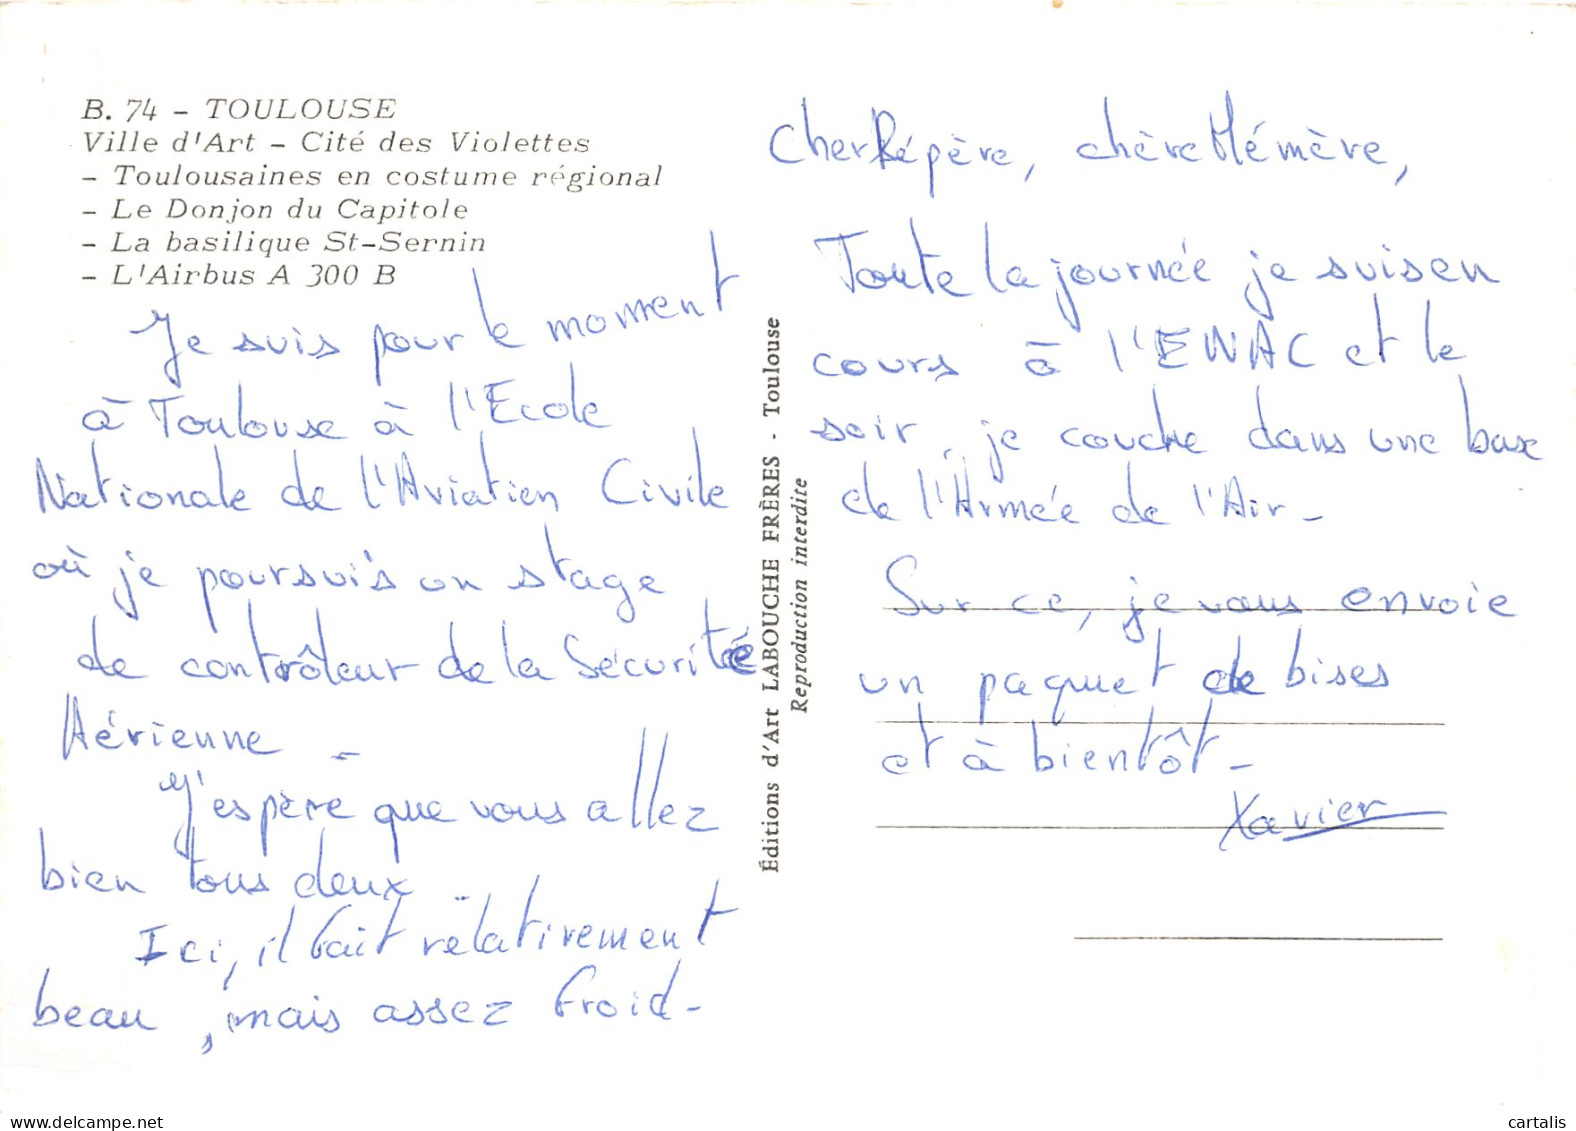 B. 74 - TOULOUSE
Ville d'Art - Cité des Violettes
- Toulousaines en costume régional
- Le Donjon du Capitole
- La basilique St-Sernin
- L'Airbus A 300 B
Je suis pour le moment
à Toulouse à l'Ecole
Nationale de l'Aviation Civile
où je poursuis un stage
de contrôleur de la Sécurité
Aérienne -
J'espère que vous allez
bien tous deux
Ici, il fait relativement
beau, mais assez froid -
Éditions d'Art LABOUCHE FRÈRES - Toulouse
Reproduction interdite
Cher Pépère, chère Mémère,
Toute la journée je suis en
cours à l'ENAC et le
soir, je couche dans une base
de l'Armée de l'Air -
Sur ce, je vous envoie
un paquet de bises
et à bientôt -
Xavier
www.delcampe.net
cartalis